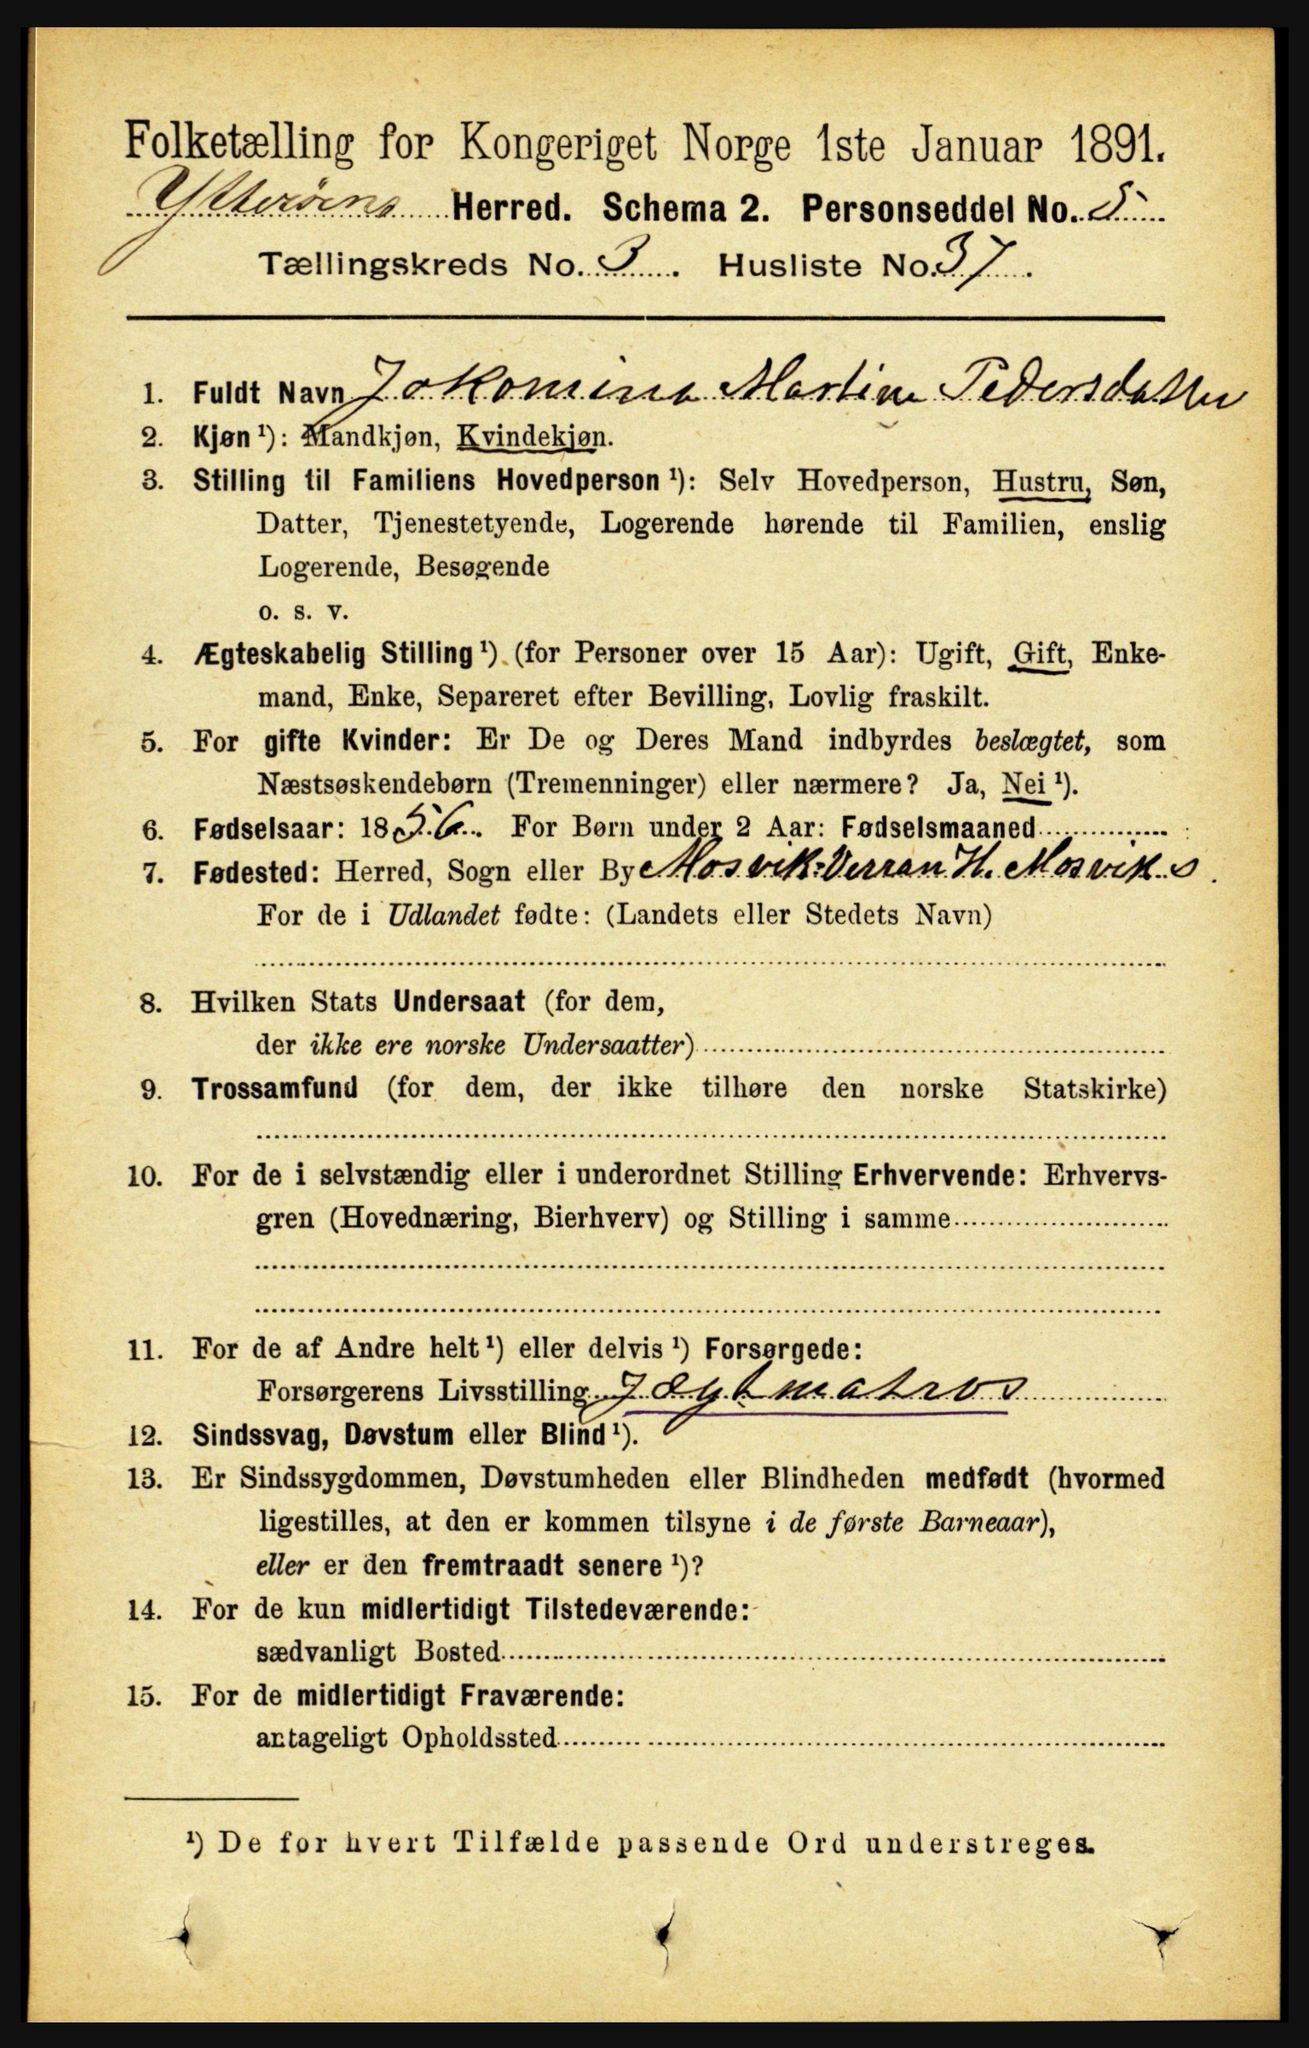 Folketælling for Kongeriget Norge 1ste Januar 1891.
Ytterøens Herred. Schema 2. Personseddel No. 5
Tællingskreds No. 3. Husliste No. 37.
1. Fuldt Navn Jakomina Martine Pedersdatter
2. Kjøn ¹): Mandkjøn, Kvindekjøn.
3. Stilling til Familiens Hovedperson ¹): Selv Hovedperson, Hustru, Søn,
Datter, Tjenestetyende, Logerende hørende til Familien, enslig
Logerende, Besøgende
o. s. v.
4. Ægteskabelig Stilling ¹) (for Personer over 15 Aar): Ugift, Gift, Enke-
mand, Enke, Separeret efter Bevilling, Lovlig fraskilt.
5. For gifte Kvinder: Er De og Deres Mand indbyrdes beslægtet, som
Næstsøskendebørn (Tremenninger) eller nærmere? Ja, Nei ¹).
6. Fødselsaar: 1856. For Børn under 2 Aar: Fødselsmaaned
7. Fødested: Herred, Sogn eller By Mosvik-Verran H. Mosvik s.
For de i Udlandet fødte: (Landets eller Stedets Navn)
8. Hvilken Stats Undersaat (for dem,
der ikke ere norske Undersaatter)
9. Trossamfund (for dem, der ikke tilhøre den norske Statskirke)
10. For de i selvstændig eller i underordnet Stilling Erhvervende: Erhvervs-
gren (Hovednæring, Bierhverv) og Stilling i samme
11. For de af Andre helt ¹) eller delvis ¹) Forsørgede:
Forsørgerens Livsstilling Jægtmatros
12. Sindssvag, Døvstum eller Blind ¹).
13. Er Sindssygdommen, Døvstumheden eller Blindheden medfødt (hvormed
ligestilles, at den er kommen tilsyne i de første Barneaar),
eller er den fremtraadt senere ¹)?
14. For de kun midlertidigt Tilstedeværende:
sædvanligt Bosted
15. For de midlertidigt Fraværende:
antageligt Opholdssted
¹) De for hvert Tilfælde passende Ord understreges.